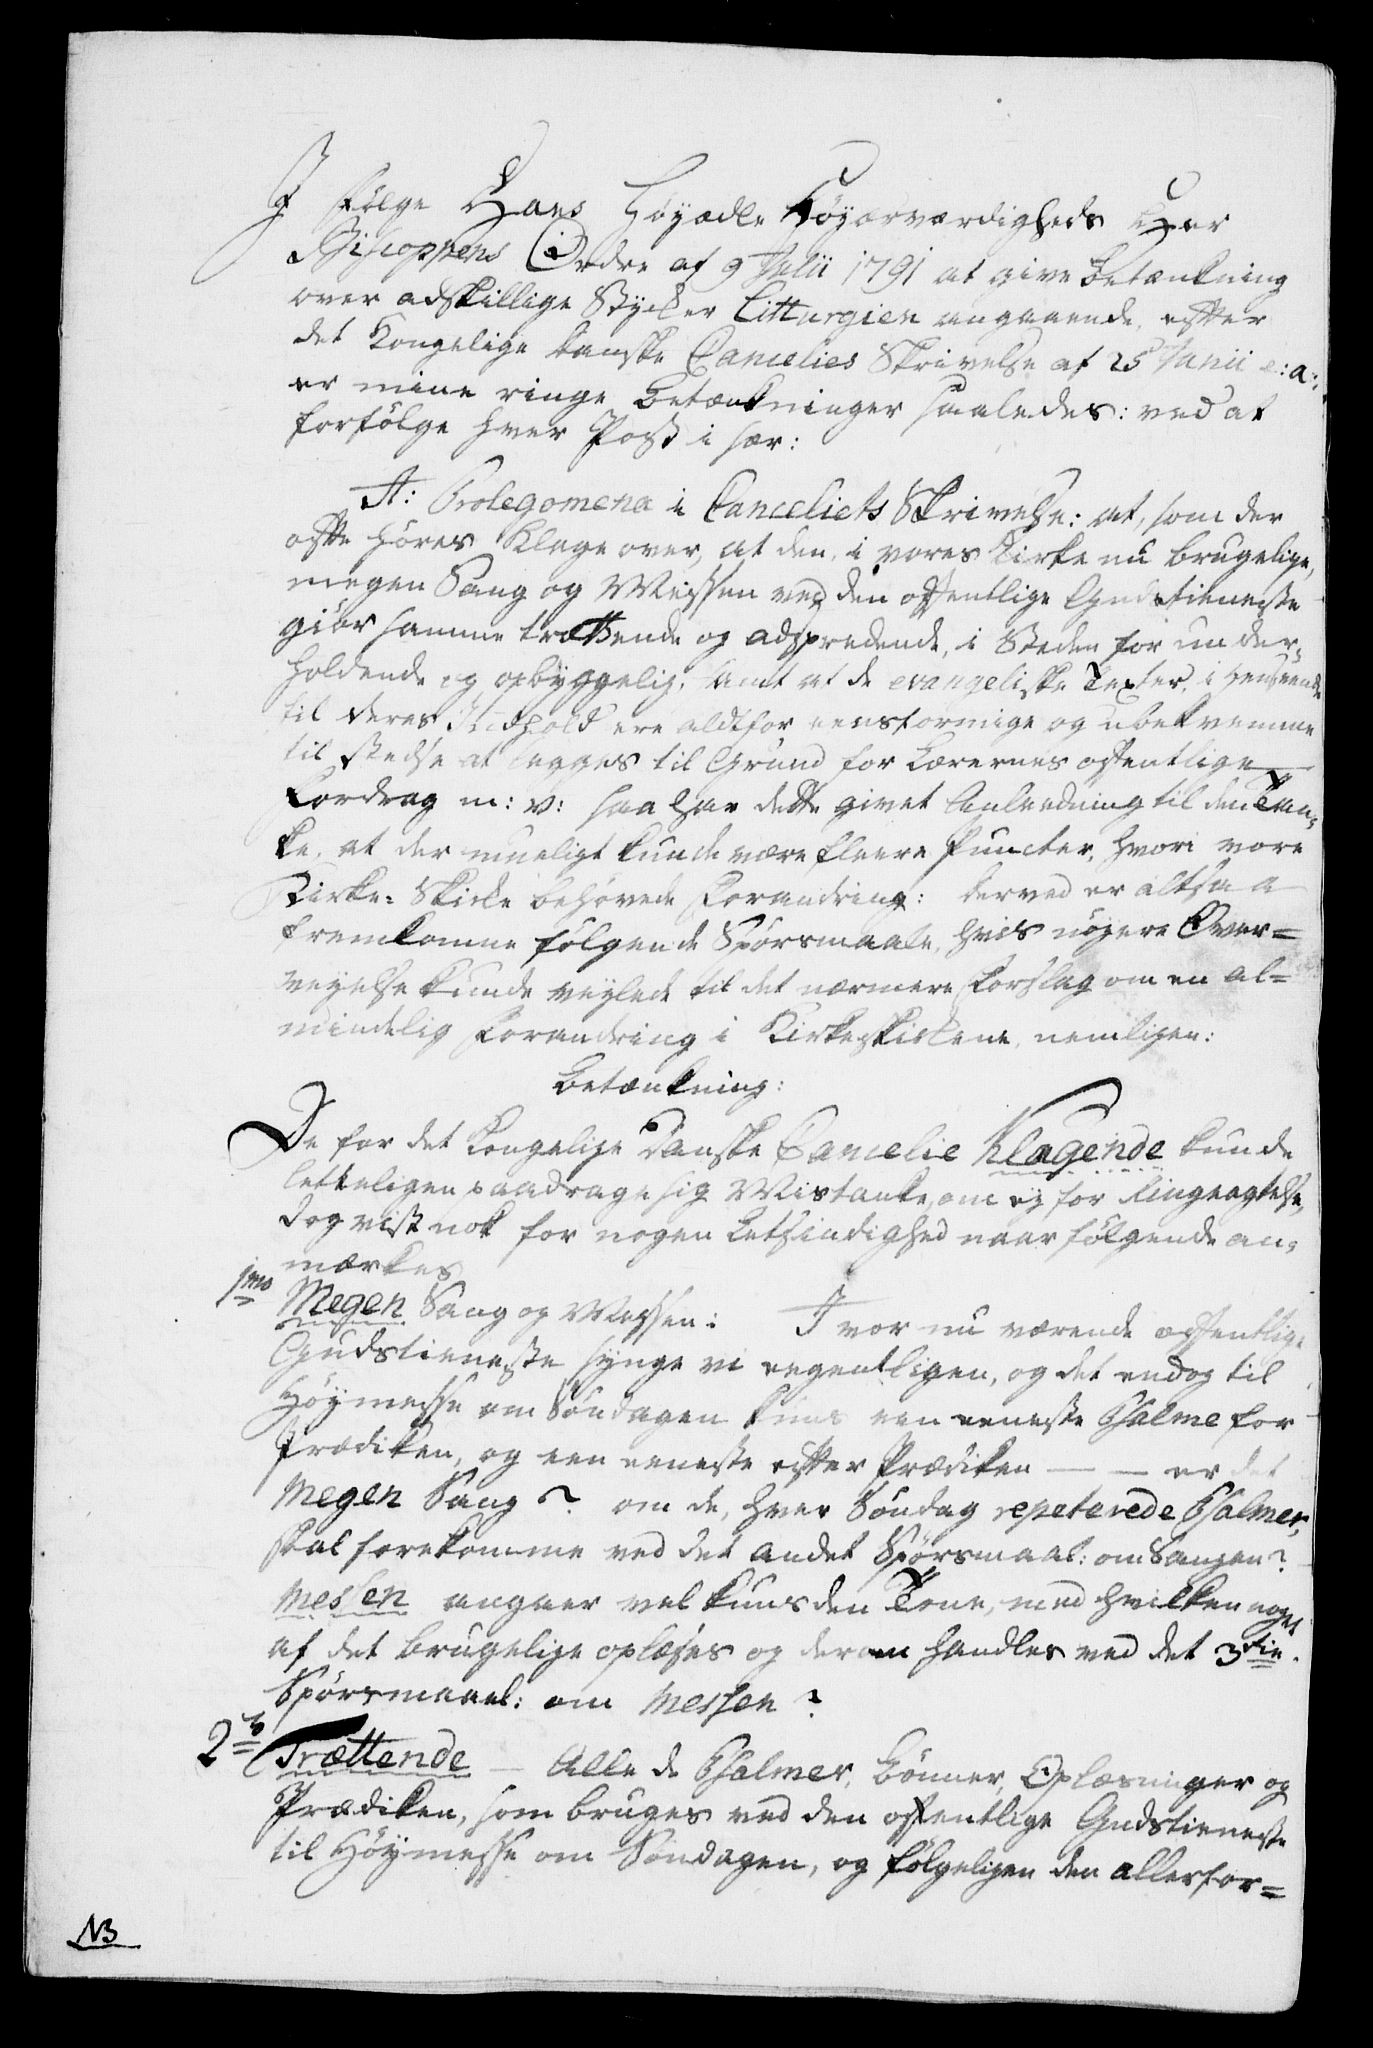 I følge Hans Høyædle Høyærværdigheds Her
Biscoppens Ordre af 9 Julii 1791 at give Betænkning
over adskillige Stycker Litturgien angaaende, efter
det Kongelige danske Cancelies Skrivelse af 25 Junii e: a:,
er mine ringe Betænkninger saaledes: ved at
forfølge hver Post i sær:
A: Prolegomena i Canceliets Skrivelse: at, som der
ofte høres Klage over, at den, i vores Kirke nu brugelige,
megen Sang og Messen ved den offentlige Gudstieneste
giør samme trættende og adspredende, i Steden for under-
holdende og opbyggelig, samt at de evangeliske Texter, i henseende
til deres Indhold ere aldtfor eensformige og ubekvemme
til stedse at legges til Grund for Lærernes offentlige
Fordrag m: v: saa har dette givet Anledning til den Tan-
ke, at der mueligt kunde være fleere Puncter, hvori vore
Kirke-Skicke behøvede Forandring: derved er altsaa
fremkomne følgende Spørsmaale, hvis nøyere Over=
veyelse kunde veylede til det nærmere Forslag om en al=
mindelig Forandring i Kirkeskickene, nemligen:
Betænkning:
De for det Kongelige Danske Cancelie klagende kunde
letteligen paadrage sig Mistanke, om ey for Ringeagtelse,
dog vist nok for nogen Letsindighed naar følgende an-
mærkes
1mo Megen Sang og Messen: I vor nu værende offentlige
Gudstieneste synge vi eegentligen, og det endog til
Høymesse om Søndagen kuns een eeneste Psalme for
Prædiken, og een eeneste efter Prædiken — — er det
Megen Sang? om de, hver Søndag repeterede Psalmer,
skal forekomme ved det andet Spørsmaal: om Sangen?
Messen angaaer vel kuns den Tone, med hvilken noget
af det brugelige oplæses og derom handles ved det 3die
Spørsmaal: om Messen?
2do Trættende — Alle de Psalmer, Bønner, Oplæsninger og
Prædiken, som bruges ved den offentlige Gudstieneste
til Høymesse om Søndagen, og følgeligen den allerfor=
NB